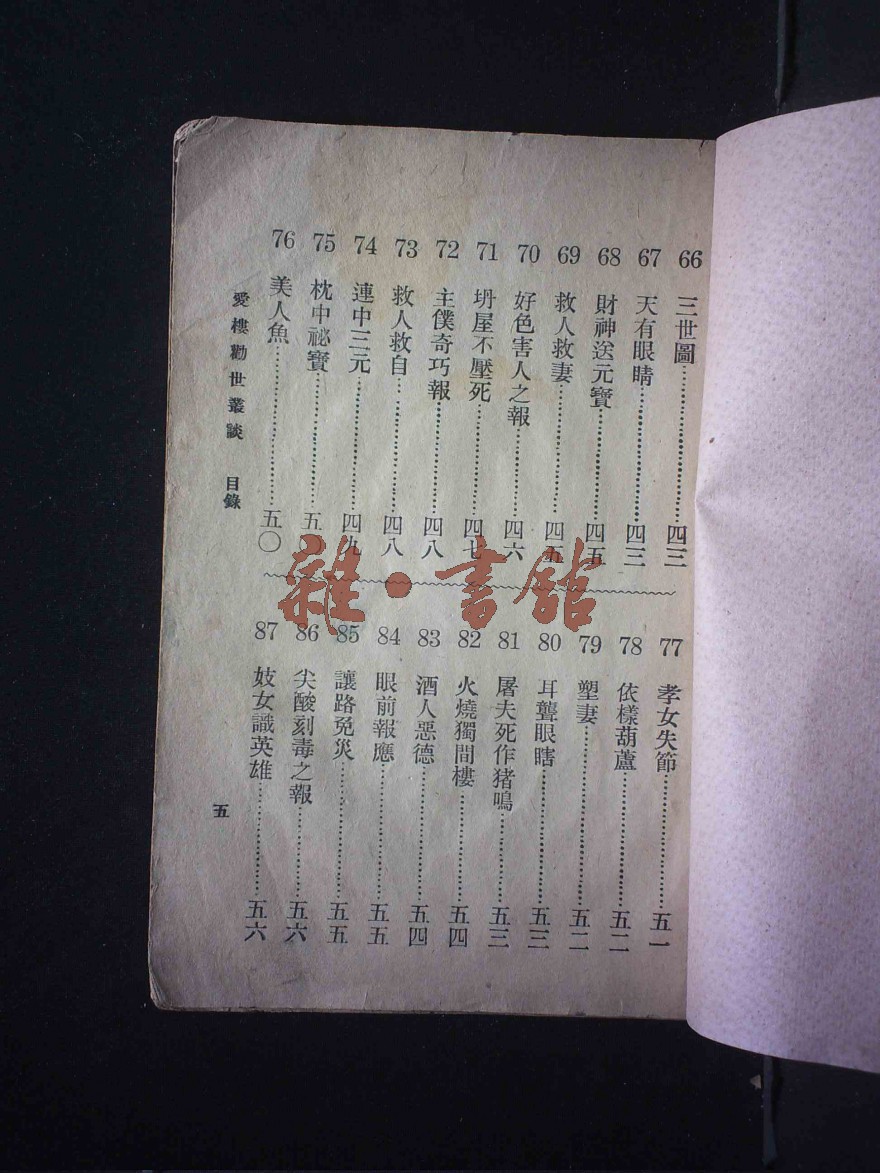 66 三世圖 四三
67 天有眼睛 四三
68 財神送元寶 四五
69 救人救妻 四五
70 好色害人之報 四六
71 坍屋不壓死 四七
72 主僕奇巧報 四八
73 救人救自 四八
74 連中三元 四九
75 枕中祕寶 五
76 美人魚 五〇
77 孝女失節 五一
78 依樣葫蘆 五二
79 塑妻 五二
80 耳聾眼瞎 五三
81 屠夫死作猪鳴 五三
82 火燒獨間樓 五四
83 酒人惡德 五四
84 眼前報應 五五
85 讓路免災 五五
86 尖酸刻毒之報 五六
87 妓女識英雄 五六
愛樓勸世叢談 目錄
五
雜·書館